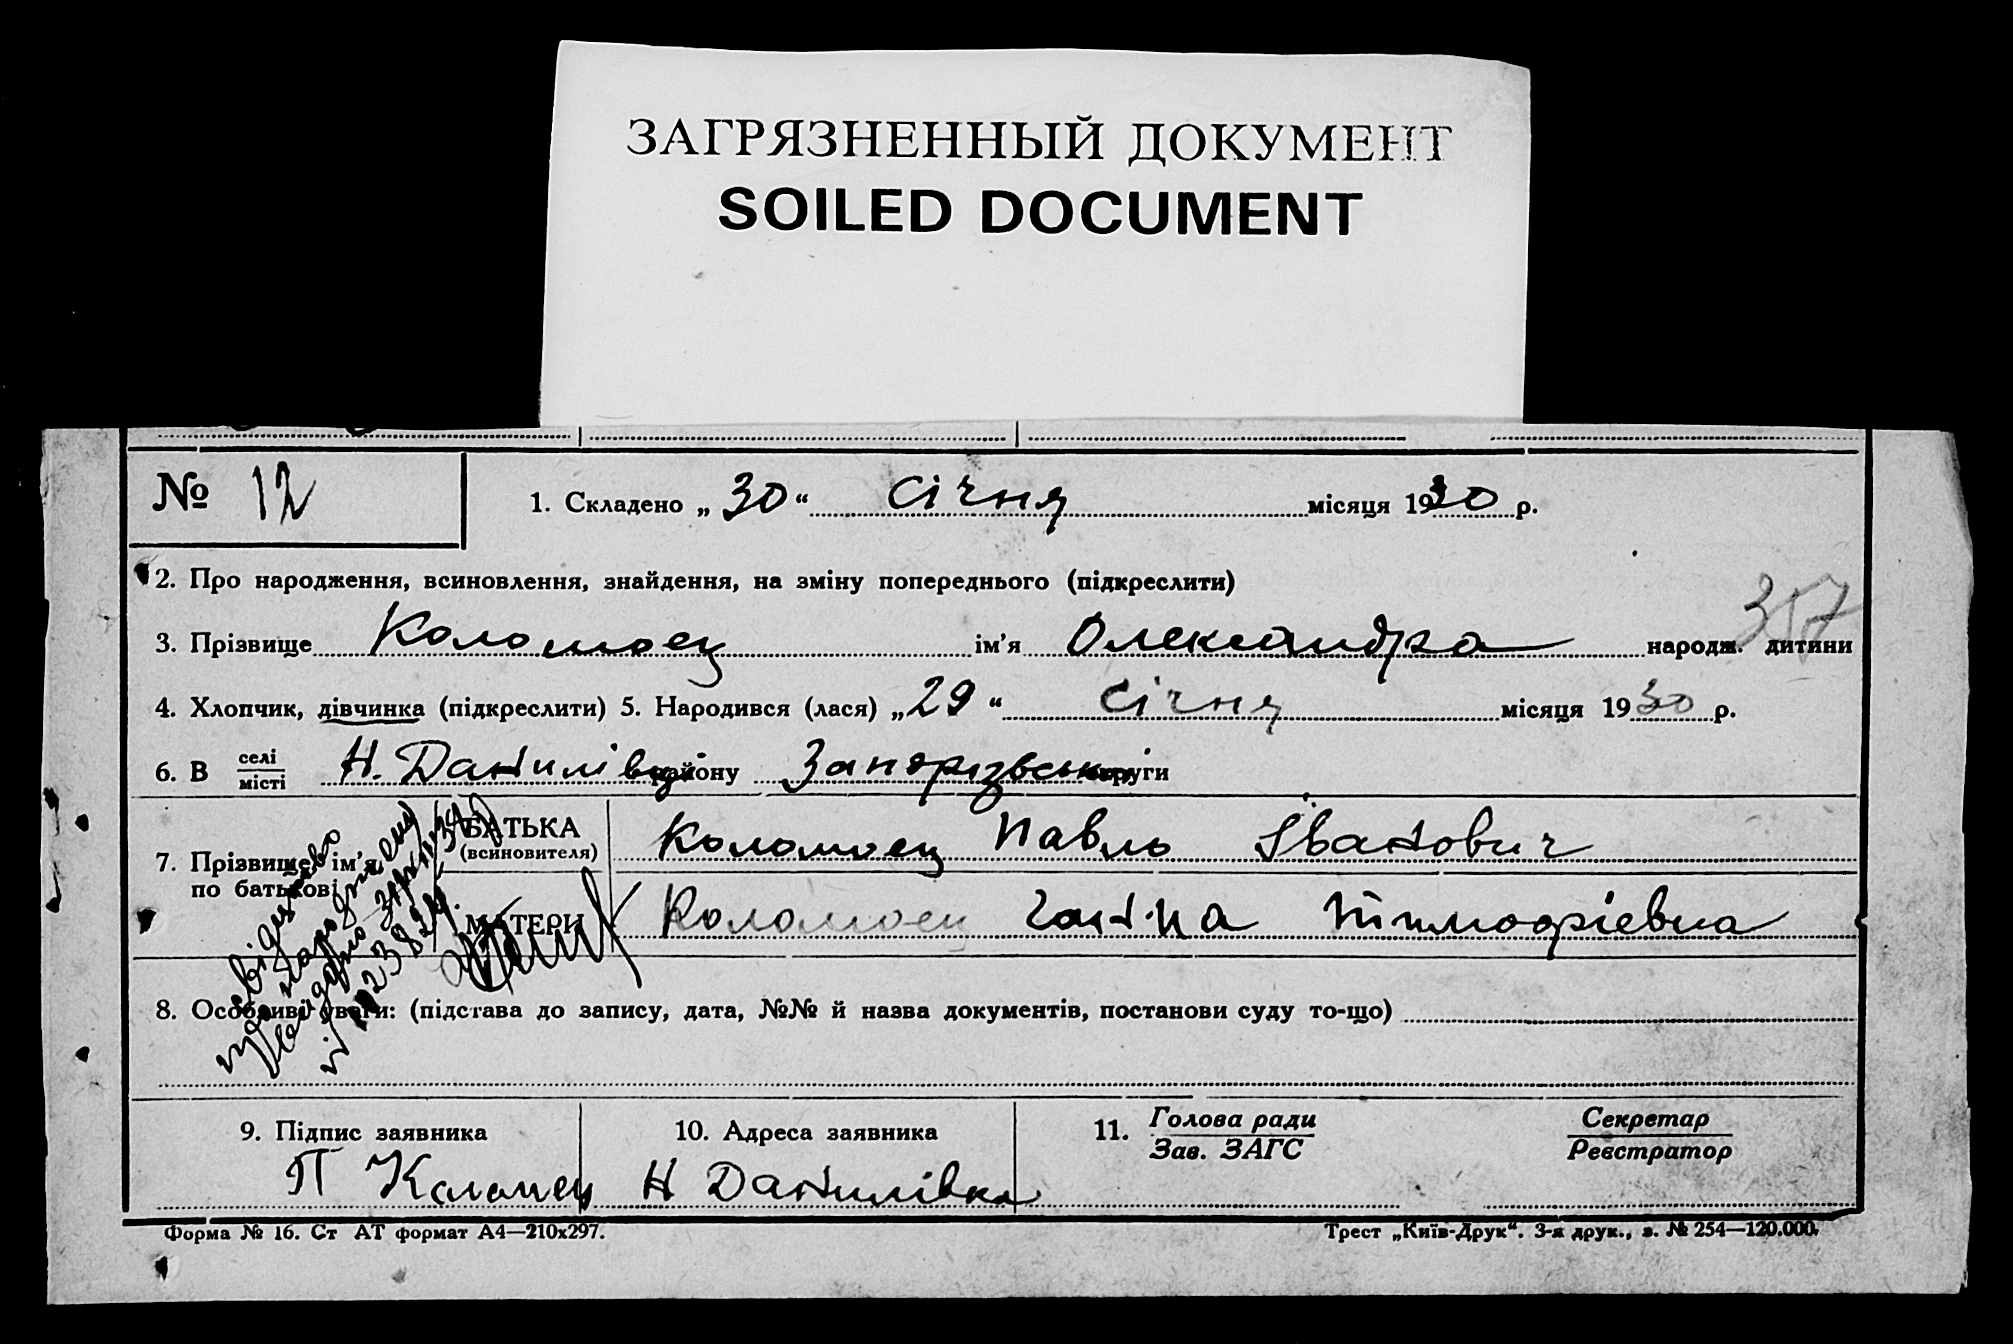 ЗАГРЯЗНЕННЫЙ ДОКУМЕНТ
SOILED DOCUMENT
№ 12
1. Складено „ 30 “ січня місяця 1930 р.
2. Про народження, всиновлення, знайдення, на зміну попереднього (підкреслити)
357
3. Прізвище Коломоец ім’я Олександра народж. дитини
4. Хлопчик, дівчинка (підкреслити) 5. Народився (лася) „ 29 “ січня місяця 1930 р.
6. В селі місті Н. Данилівці району Запорізської округи
7. Прізвище, ім’я, по батькові
БАТЬКА (всиновителя) Коломоец Павло Іванович
МАТЕРИ Коломоец Ганна Тимофіевна
8. Особливі уваги: (підстава до запису, дата, №№ й назва документів, постанови суду то-що)
9. Підпис заявника
10. Адреса заявника
11. Голова ради Зав. ЗАГС
Секретар Реєстратор
П Коломец
Н Данилівка
Форма № 16. Ст АТ формат А4—210х297.
Трест „Київ-Друк“. 3-я друк., з. № 254—120.000.